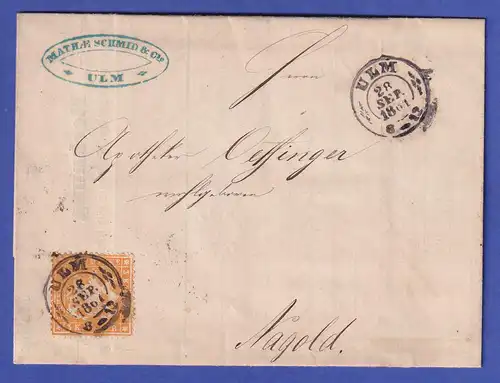 MATHÆ SCHMID & Cie
ULM
ULM
28
SEP.
1861
8-12
Herrn
Apotheker Oeffinger
wohlgeboren
Nagold.
ULM
28
SEP.
1861
8-12